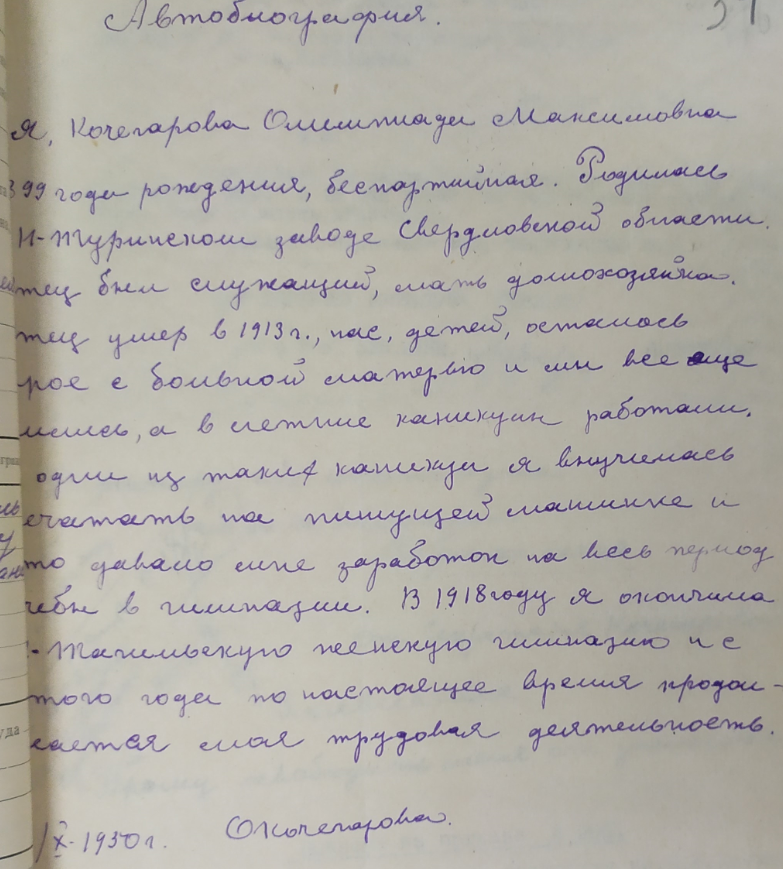 Автобиография. 31
Я, Кочегарова Олимпиада Максимовна
899 года рождения, беспартийная. Родилась
Н-Туринском заводе Свердловской области.
тец был служащий, мать домохозяйка.
тец умер в 1913 г., нас, детей, осталось
рое с больной матерью и мы все еще
ились, а в летние каникулы работали.
одни из таких каникул я выучилась
ечатать на пишущей машинке и
то давало мне заработок на весь период
чебы в гимназии. В 1918 году я окончила
-Тагильскую женскую гимназию и с
того года по настоящее время продол-
жается моя трудовая деятельность.
/X-1950 г. ОКочегарова.